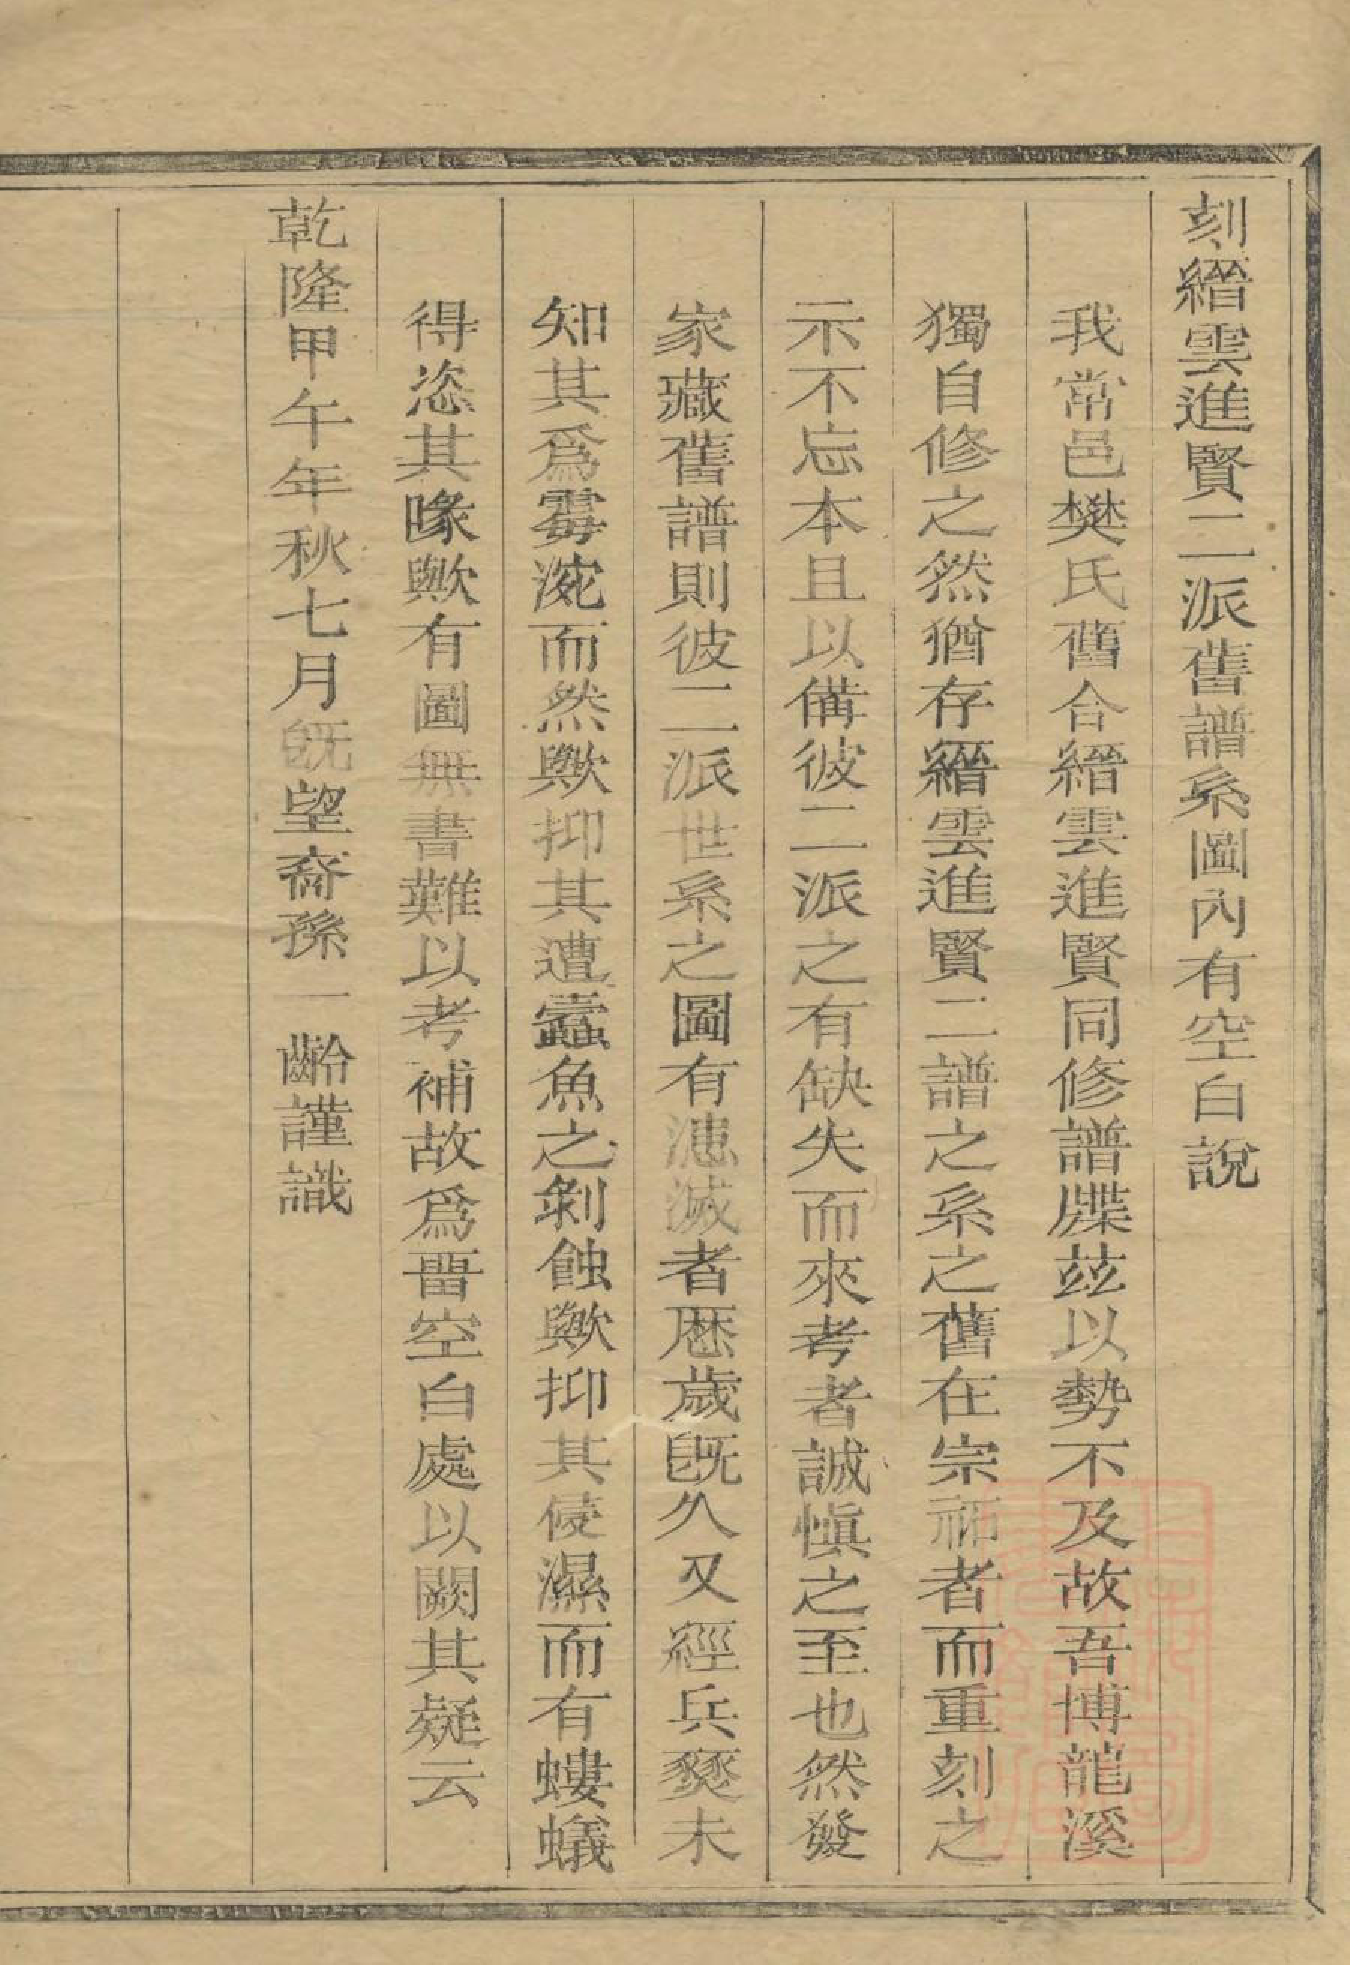 刻縉雲進賢二派舊譜系圖內有空白說
我常邑樊氏舊合縉雲進賢同修譜牒茲以勢不及故吾博龍溪
獨自修之然猶存縉雲進賢二譜之系之舊在宗祏者而重刻之
示不忘本且以俻彼二派之有缺失而來考者誠愼之至也然發
家藏舊譜則彼二派世系之圖有漶滅者歷歲旣久又經兵燹未
知其爲霉浼而然歟抑其遭蠹魚之剝蝕歟抑其侵濕而有螻蟻
得恣其喙歟有圖無書難以考補故爲畱空白處以闕其疑云
乾隆甲午年秋七月旣望裔孫一齡謹識